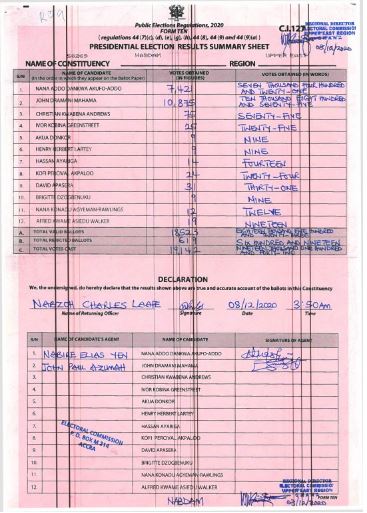 R39
Public Elections Regulations, 2020
FORM TEN
C.I.127
REGIONAL DIRECTOR
ELECTORAL COMMISSION
UPPER EAST REGION
08/12/2020
PRESIDENTIAL ELECTION RESULTS SUMMARY SHEET
NABDAM UPPER EAST
NAME OF CONSTITUENCY REGION
S/N NAME OF CANDIDATE (In the order in which they appear on the Ballot Paper) VOTES OBTAINED (IN FIGURES) VOTES OBTAINED (IN WORDS)
1. NANA ADDO DANKWA AKUFO-ADDO 7,421 SEVEN THOUSAND FOUR HUNDRED AND TWENTY-ONE
2. JOHN DRAMANI MAHAMA 10,875 TEN THOUSAND EIGHT HUNDRED AND SEVENTY-FIVE
3. CHRISTIAN KWABENA ANDREWS 75 SEVENTY-FIVE
4. IVOR KOBINA GREENSTREET 25 TWENTY-FIVE
5. AKUA DONKOR 9 NINE
6. HENRY HERBERT LARTEY 9 NINE
7. HASSAN AYARIGA 14 FOURTEEN
8. KOFI PERCIVAL AKPALOO 24 TWENTY-FOUR
9. DAVID APASERA 31 THIRTY-ONE
10. BRIGITTE DZOGBENUKU 9 NINE
11. NANA KONADU AGYEMAN-RAWLINGS 12 TWELVE
12. ALFRED KWAME ASIEDU WALKER 19 NINETEEN
A. TOTAL VALID BALLOTS 18523 EIGHTEEN THOUSAND FIVE HUNDRED AND TWENTY-THREE
B. TOTAL REJECTED BALLOTS 619 SIX HUNDRED AND NINETEEN
C. TOTAL VOTES CAST 19142 NINETEEN THOUSAND ONE HUNDRED AND FORTY-TWO
DECLARATION
We, the undersigned, do hereby declare that the results shown above are true and accurate account of the ballots in this Constituency
CHARLES 08/12/2020 3:50AM
Name of Returning Officer Signature Date Time
S/N NAME OF CANDIDATE'S AGENT NAME OF CANDIDATE SIGNATURE OF AGENT
1. NABIRE ELIAS YEN NANA ADDO DANKWA AKUFO-ADDO
2. JOHN PAUL AZUMAH JOHN DRAMANI MAHAMA
3. CHRISTIAN KWABENA ANDREWS
4. IVOR KOBINA GREENSTREET
5. AKUA DONKOR
6. HENRY HERBERT LARTEY
7. HASSAN AYARIGA
8. KOFI PERCIVAL AKPALOO
9. DAVID APASERA
10. BRIGITTE DZOGBENUKU
11. NANA KONADU AGYEMAN-RAWLINGS
12. ALFRED KWAME ASIEDU WALKER
ELECTORAL COMMISSION
P. O. BOX M 214
ACCRA
NABDAM
REGIONAL DIRECTOR
ELECTORAL COMMISSION
UPPER EAST REGION
08/12/2020
FORM TEN